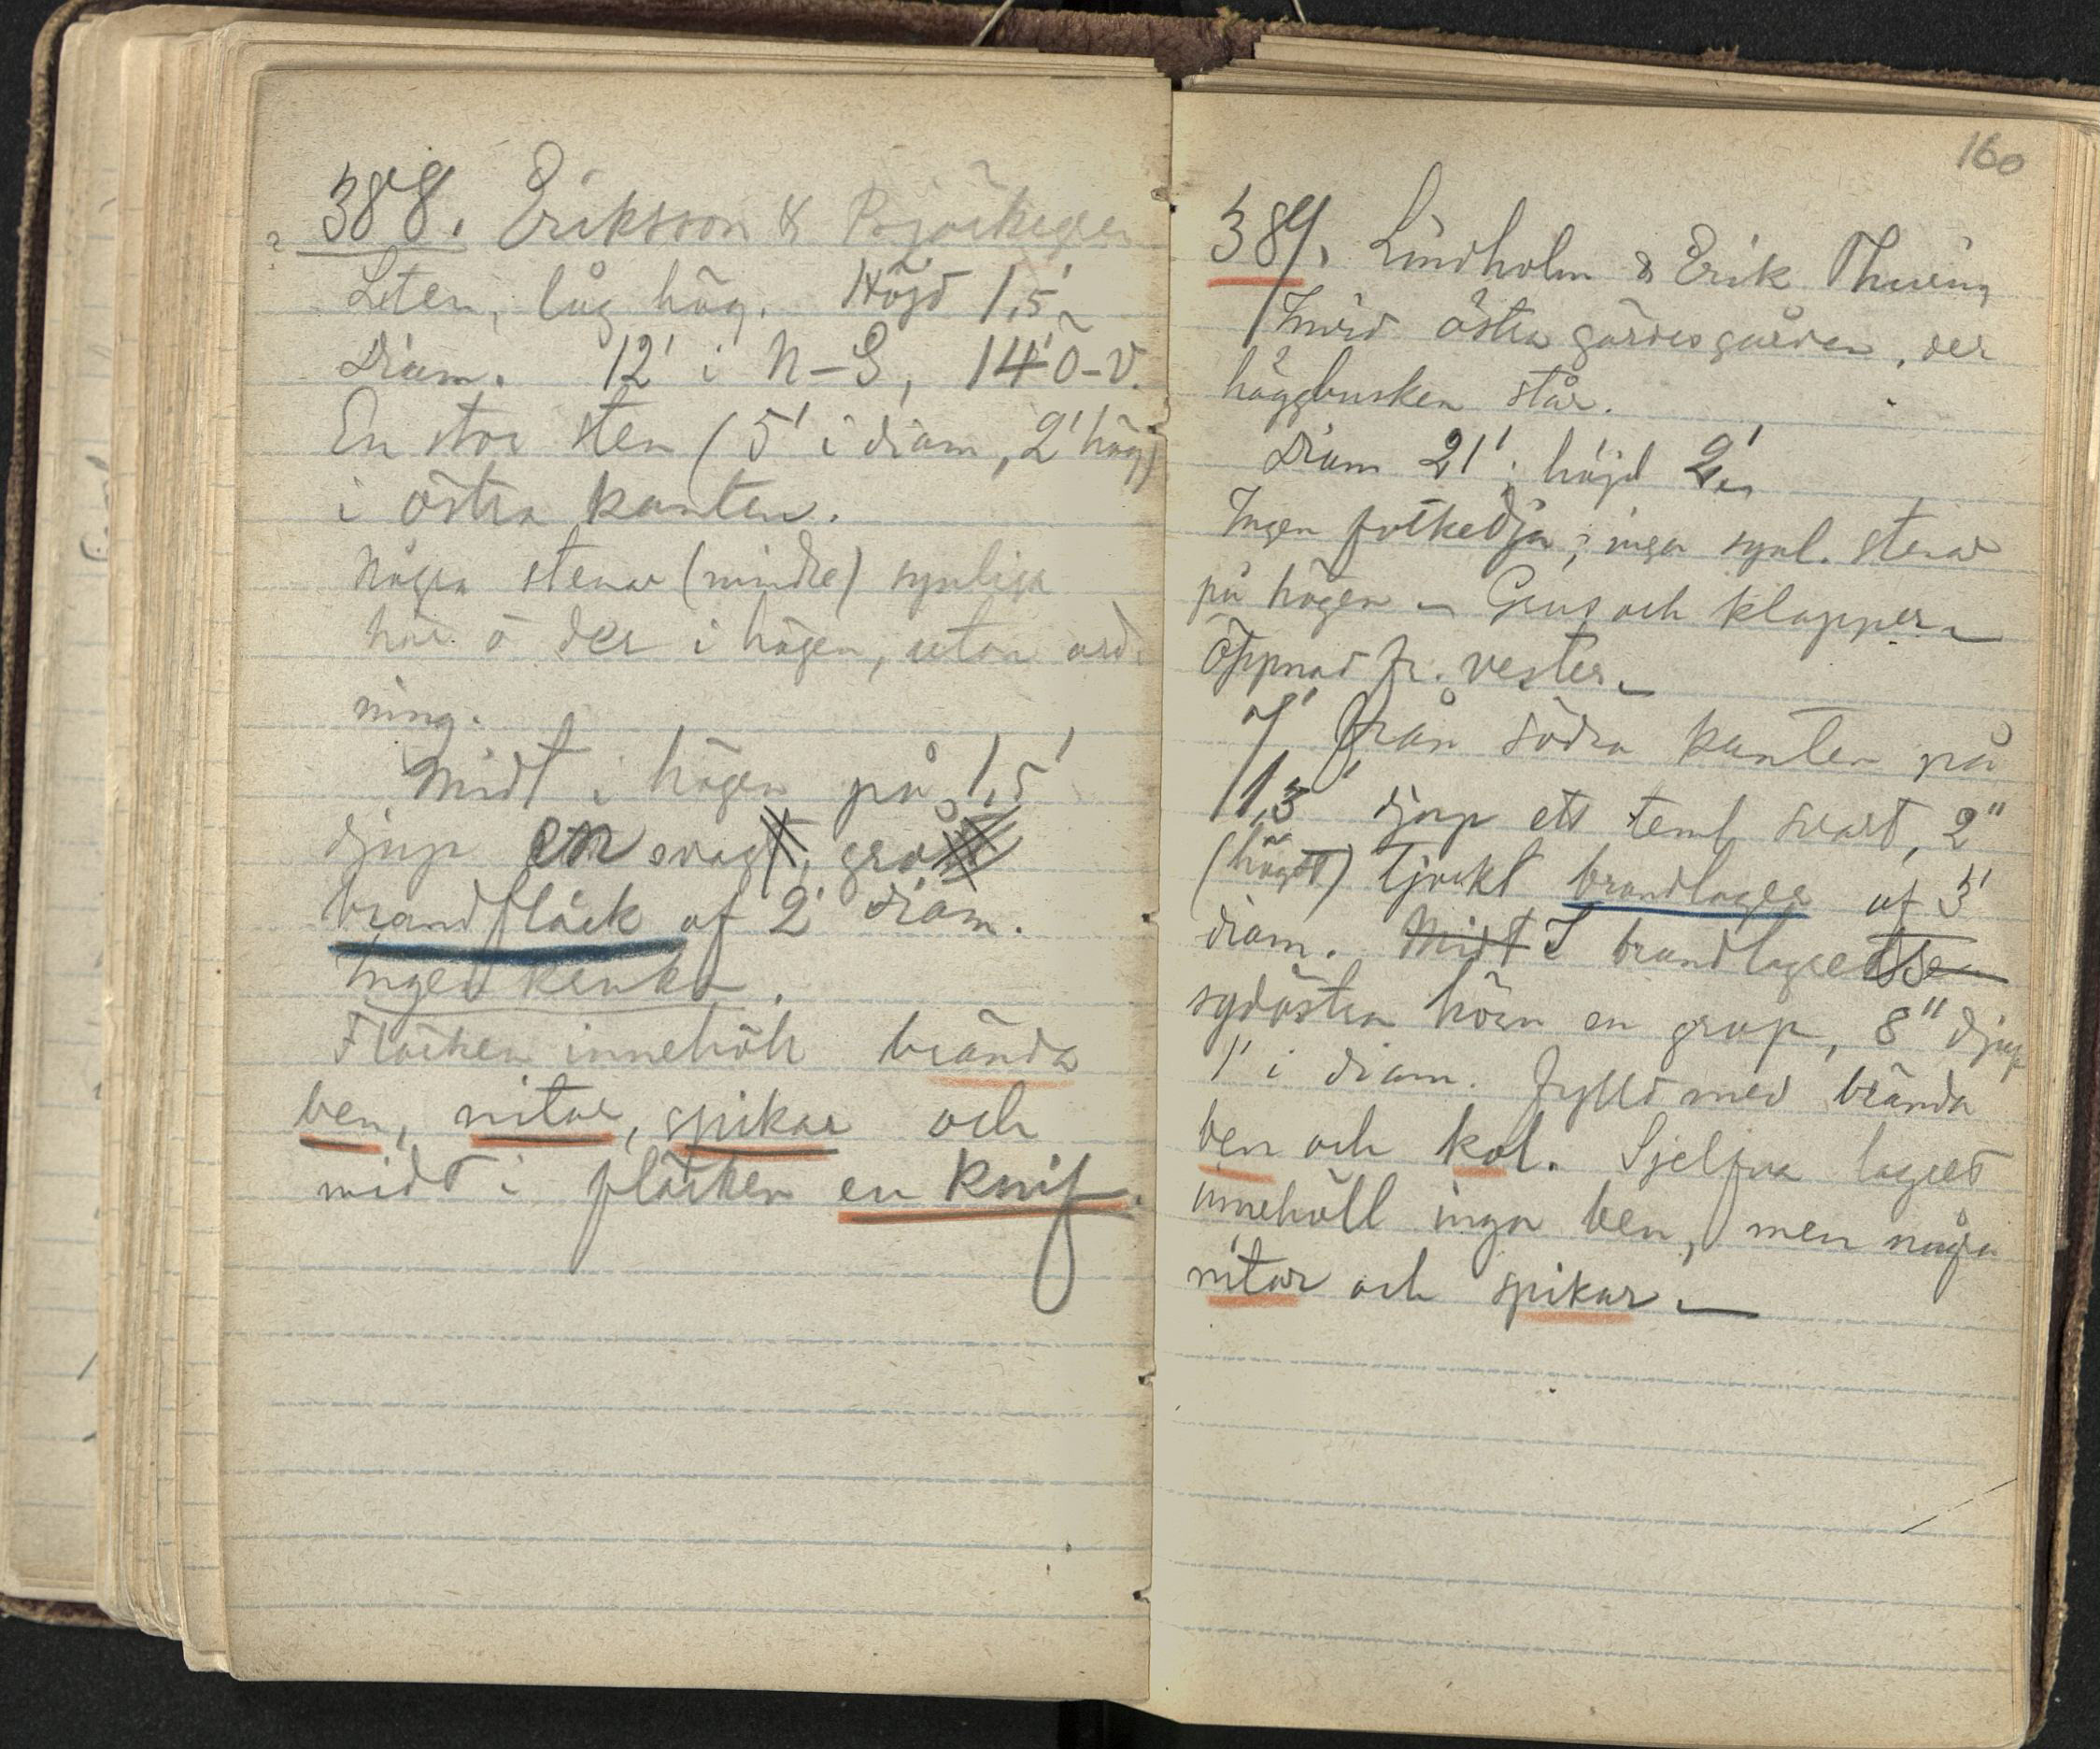 388. Eriksson &
Liten, låg hög. Höjd 1,5'
Diam. 12' i N–S, 14' Ö–V.
En stor sten (5' i diam, 2' hög)
i östra kanten.
Några stenar (mindre) synliga
här o der i högen, utan ord-
ning.
Midt i högen på 1,5'
djup en svag, grå
brandfläck af 2' diam.
Ingen kruka.
Fläcken innehöll brända
ben, nitar, spikar och
midt i fläcken en knif.
160
389. Lindholm & Erik Thuring
Invid östra gärdesgården, der
häggbusken står.
Diam 21'; höjd 2'
Ingen fotkedja; inga synl. stenar
på högen – Grus och klapper –
Öppnad fr. vester –
7' från södra kanten på
1,3' djup ett teml. svart, 2"
(högst) tjockt brandlager af 3'
diam. Midt I brandlagrets
sydöstra hörn en grop, 8" djup
1' i diam. Fylld med brända
ben och kol. Sjelfva lagret
innehöll inga ben, men några
nitar och spikar –